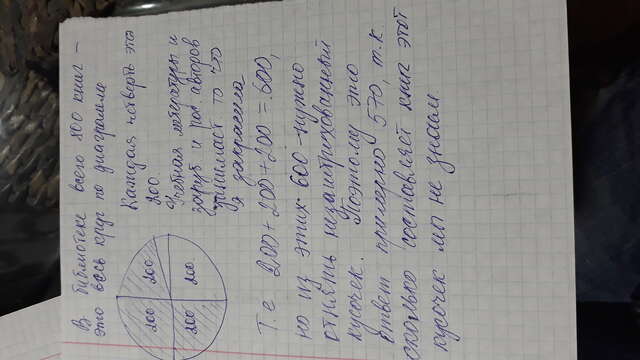 В библиотеке всего 800 книг –
это весь круг по диаграмме
200 200
200 200
Каждая четверть это
200.
Учебная литературы и
заруб. и рос. авторов
занимает то что
я закрасила
Т.е 200 + 200 + 200 = 600,
но из этих 600 – нужно
отнять незаштрихованный
кусочек. Поэтому это
ответ примерно 570, т.к
сколько составляет книг этот
кусочек мы не знаем.